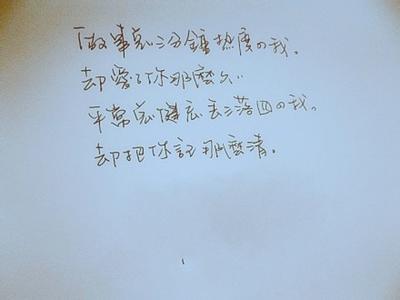 「做事只三分鐘熱度の我。
却愛了你那麼久..
平常忘健忘丟三落四の我。
却把你記那麼清。